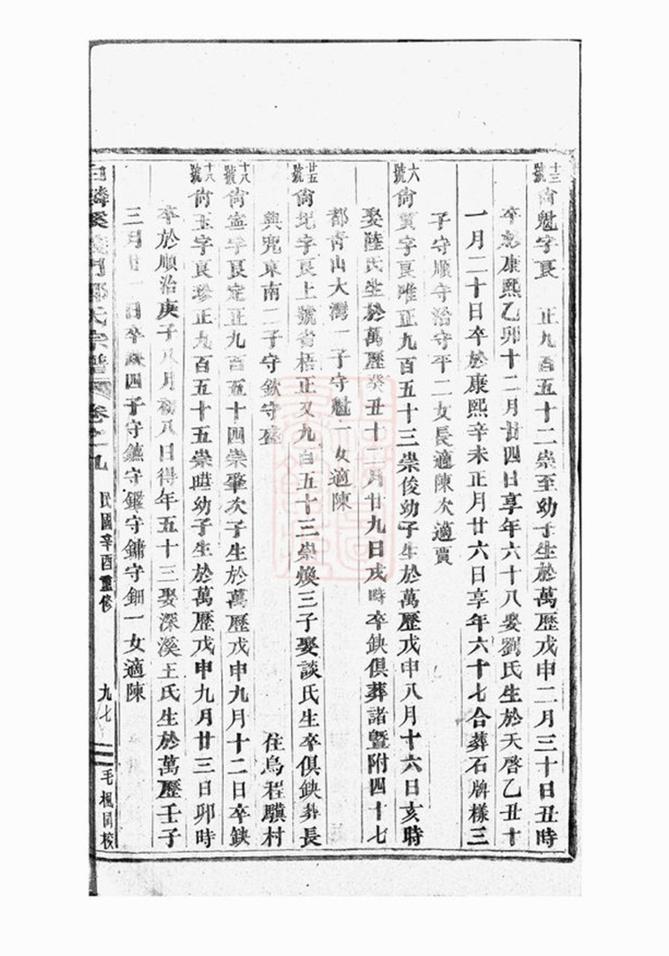 十三號尙魁字良　正九百五十二崇至幼子生於萬歷戊申二月三十日丑時
卒於康熙乙卯十二月廿四日享年六十八娶劉氏生於天啓乙丑十
一月二十日卒於康熙辛未正月廿六日享年六十七合葬石牌樣三
子守順守治守平二女長適陳次適賈
六號尙賓字良唯正九百五十三崇俊幼子生於萬歷戊申八月十六日亥時
娶陸氏生於萬歷癸丑十二月廿九日戌時卒缺俱葬諸暨附四十七
都青山大灣一子守魁一女適陳
廿五號尙圮字良上號省梧正又九百五十三崇煥三子娶談氏生卒俱缺葬長
興兕東南二子守欽守　住烏程驥村
十八號尙寧字良定正九百五十四崇肇次子生於萬歷戊申九月十二日卒缺
十八號尙玉字良珍正九百五十五崇　幼子生於萬歷戊申九月廿三日卯時
卒於順治庚子八月初八日得年五十三娶深溪王氏生於萬歷壬子
三月四日卒缺四子守鑣守鑑守鏞守鈿一女適陳
門鄭氏宗譜　卷之九　民國辛酉重修　九七　毛楓同校